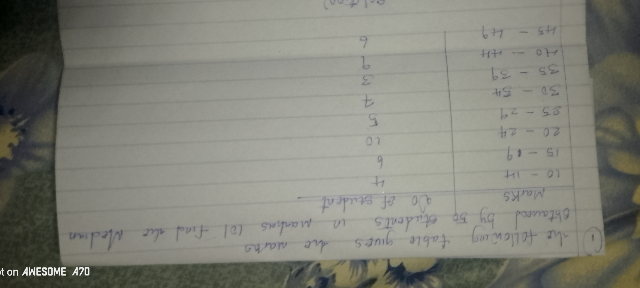 1) the following table gives the marks
obtained by 50 students in marks (a) find the Median
Marks No of student
10 - 14 4
15 - 19 6
20 - 24 10
25 - 29 5
30 - 34 7
35 - 39 3
40 - 44 9
45 - 49 6
Solution
ot on AWESOME A70